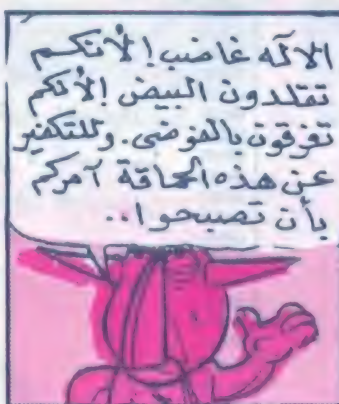 الآله غاضب! لأنكم
تقلدون البيض! لأنكم
تغرقون بالفوضى. وللتكفير
عن هذه الحماقة آمركم
بأن تصبحوا..